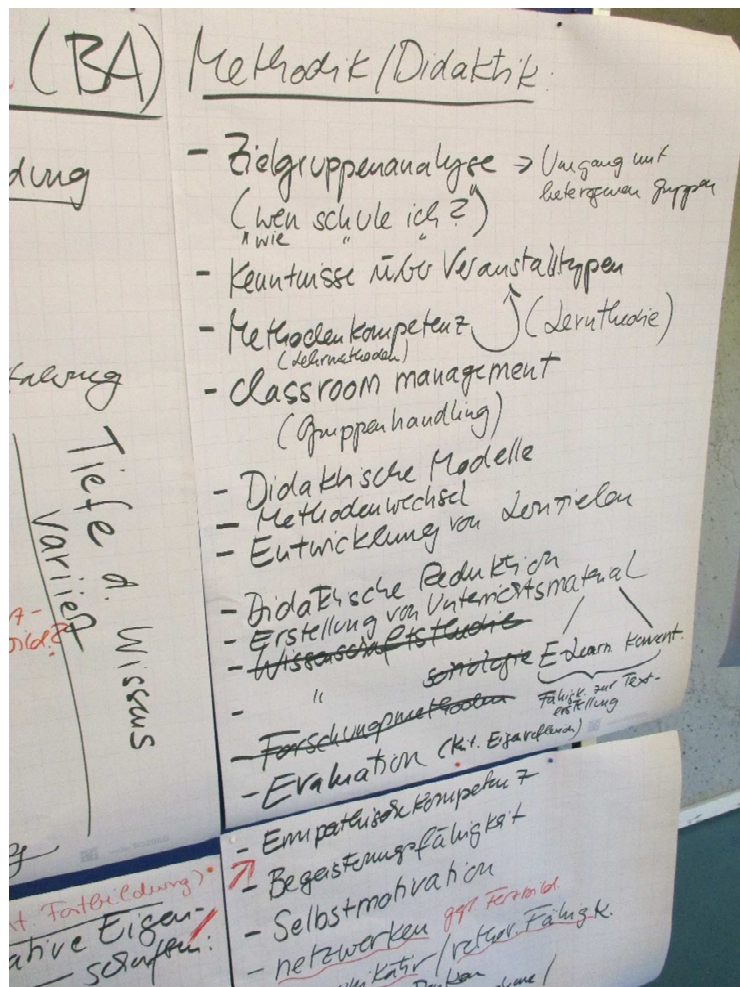 (BA)
dung
Tiefe d. Wissens
variiert
Methodik/Didaktik:
- Zielgruppenanalyse → Umgang mit
heterogenen Gruppen
(wen schule ich?)
wie " "
- Kenntnisse über Veranstalttypen
- Methodenkompetenz (Lerntheorie)
(Lehrmethoden)
- classroom management
(Gruppenhandling)
- Didaktische Modelle
- Methodenwechsel
- Entwicklung von Lernzielen
- Didaktische Reduktion
- Erstellung von Unterrichtsmaterial
- Wissenschaftstheorie
" soziologie E-Learn. konvent.
Fähigk. zur Text-
erstellung
- Forschungsmethoden
- Evaluation
- Empathische Kompetenz
- Begeisterungsfähigkeit
- Selbstmotivation
- netzwerken ggf. Fortbild.
/ rethor. Fähigk.
t. Fortbildung)
ative Eigen-
schaften: